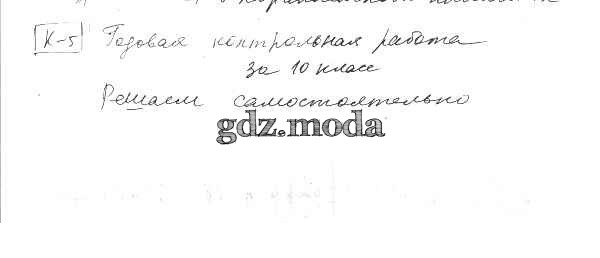 К-5 Годовая контрольная работа
за 10 класс
Решаем самостоятельно
gdz.moda